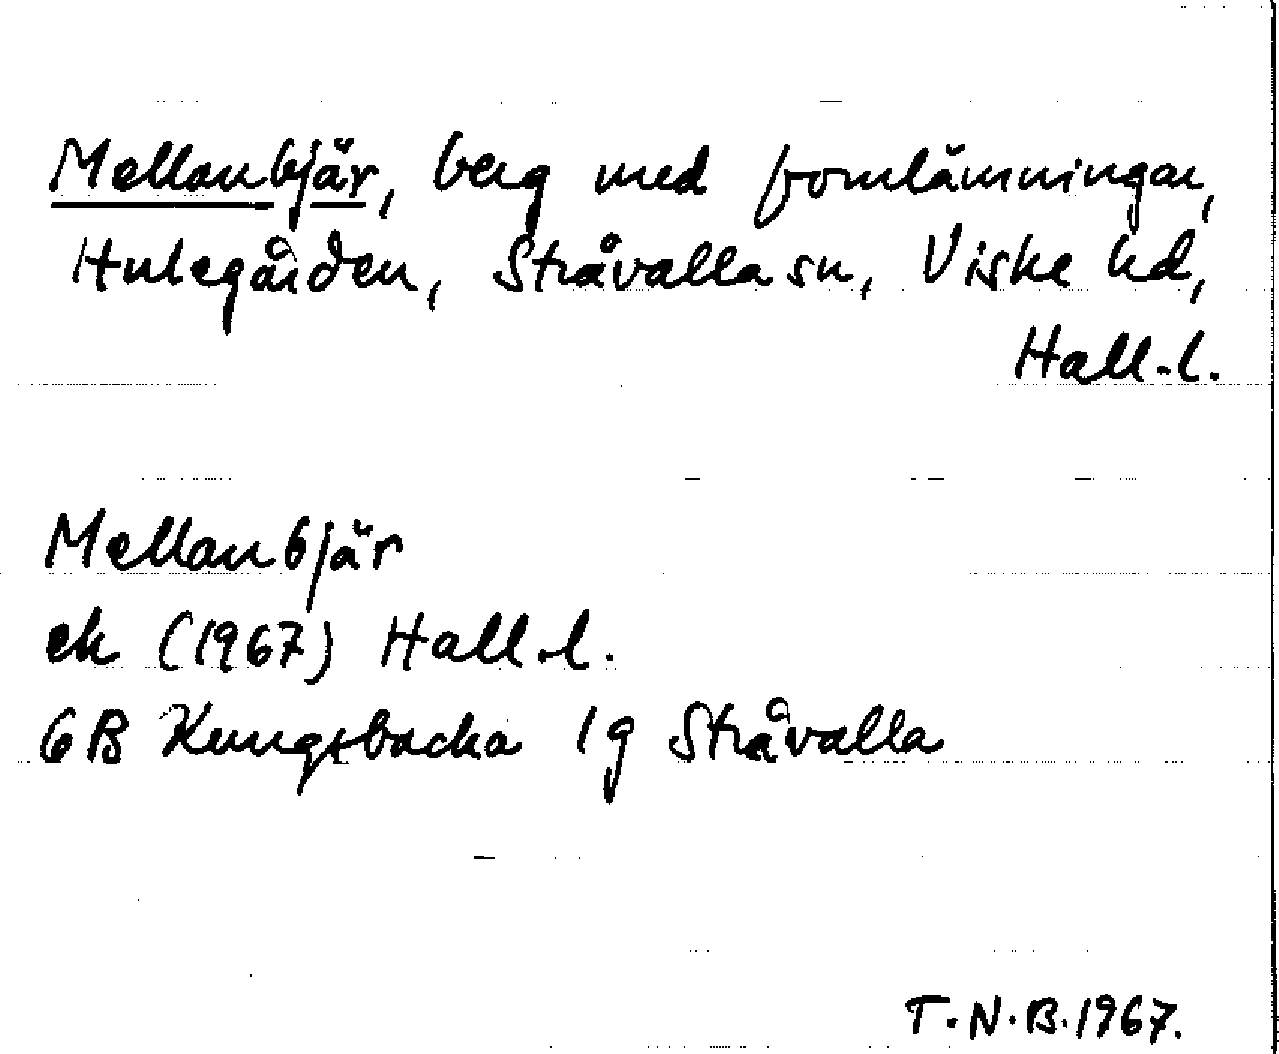 Mellanbjär, berg med fornlämningar,
Hulegården, Stråvalla sn, Viske hd,
Hall.l.
Mellanbjär
ek (1967) Hall.l.
6B Kungsbacka 1g Stråvalla
T.N.B.1967.